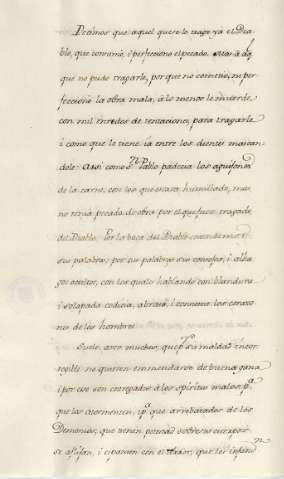 Decimos que aquel que se le trago ya el Dia-
blo, que consumó, i perfecciono el pecado. mas a aq
que no pudo tragarle, porque no cometio, ni per-
fecciono la obra mala, a lo menos le muerde,
con mil enredos de tentaciones, para tragarle
i como que le tiene ia entre los dientes mascan-
dole. Assi como Sn Pablo padecia los aguijones
de la carne, con los que estava humillado, mas
no tenia pecado de obra por el que fuese tragado
del Diablo. Por la boca del Diablo entendemos
sus palabras; por sus palabras sus consejos, i alha-
gos ocultos, con los quales hablando con blandura
i solapada codicia, abrasa, i conmueve los corazo-
nes de los hombres.
Suele, ante muchos, que por su maldad incor-
regible no quieren enmendarse de buena gana
i por eso son entregados a los spiritus malos pa
que los atormenten, que arrebatados de los
Demonios, que tienen potestad sobre sus cuerpos
se aflijan, i espanten con el terror, que les infun